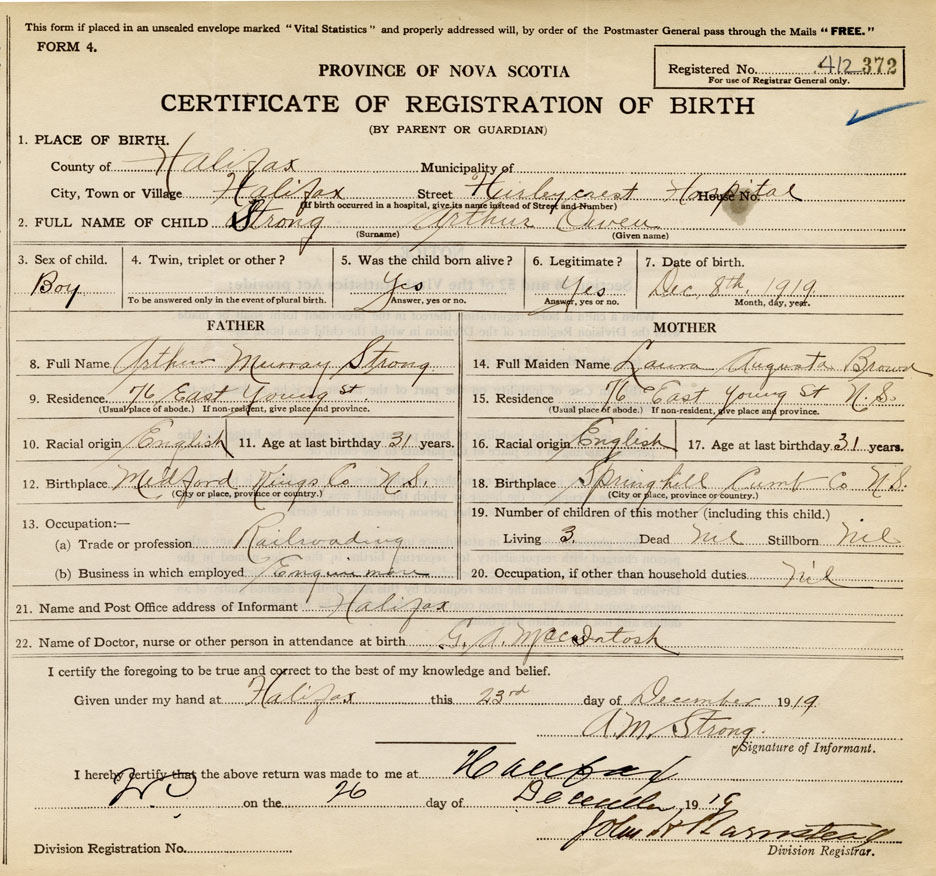 This form if placed in an unsealed envelope marked "Vital Statistics" and properly addressed will, by order of the Postmaster General pass through the Mails "FREE."
FORM 4.
Registered No. 412 372
For use of Registrar General only.
PROVINCE OF NOVA SCOTIA
CERTIFICATE OF REGISTRATION OF BIRTH
(BY PARENT OR GUARDIAN)
1. PLACE OF BIRTH.
County of Halifax Municipality of
City, Town or Village Halifax Street Hospital House No.
(If birth occurred in a hospital, give its name instead of Street and Number)
2. FULL NAME OF CHILD Strong Arthur Owen
(Surname) (Given name)
3. Sex of child. 4. Twin, triplet or other? 5. Was the child born alive? 6. Legitimate? 7. Date of birth.
Boy Yes Yes Dec. 8th, 1919
To be answered only in the event of plural birth. Answer, yes or no. Answer, yes or no. Month, day, year.
FATHER MOTHER
8. Full Name Arthur Murray Strong 14. Full Maiden Name Laura Augusta Brown
9. Residence. 76 East Young St. 15. Residence 76 East Young St N.S.
(Usual place of abode.) If non-resident, give place and province. (Usual place of abode.) If non-resident, give place and province.
10. Racial origin English 11. Age at last birthday 31 years. 16. Racial origin English 17. Age at last birthday 31 years.
12. Birthplace Medford Kings Co N.S. 18. Birthplace Springhill Cumb Co N.S.
(City or place, province or country.) (City or place, province or country.)
13. Occupation:— 19. Number of children of this mother (including this child.)
(a) Trade or profession Railroading Living 3 Dead Nil Stillborn Nil
(b) Business in which employed 20. Occupation, if other than household duties Nil
21. Name and Post Office address of Informant Halifax
22. Name of Doctor, nurse or other person in attendance at birth G. A. MacIntosh
I certify the foregoing to be true and correct to the best of my knowledge and belief.
Given under my hand at Halifax this 23rd day of December 1919
A. M. Strong.
Signature of Informant.
I hereby certify that the above return was made to me at Halifax
on the 26 day of December 1919
John H Barnstead
Division Registration No. Division Registrar.